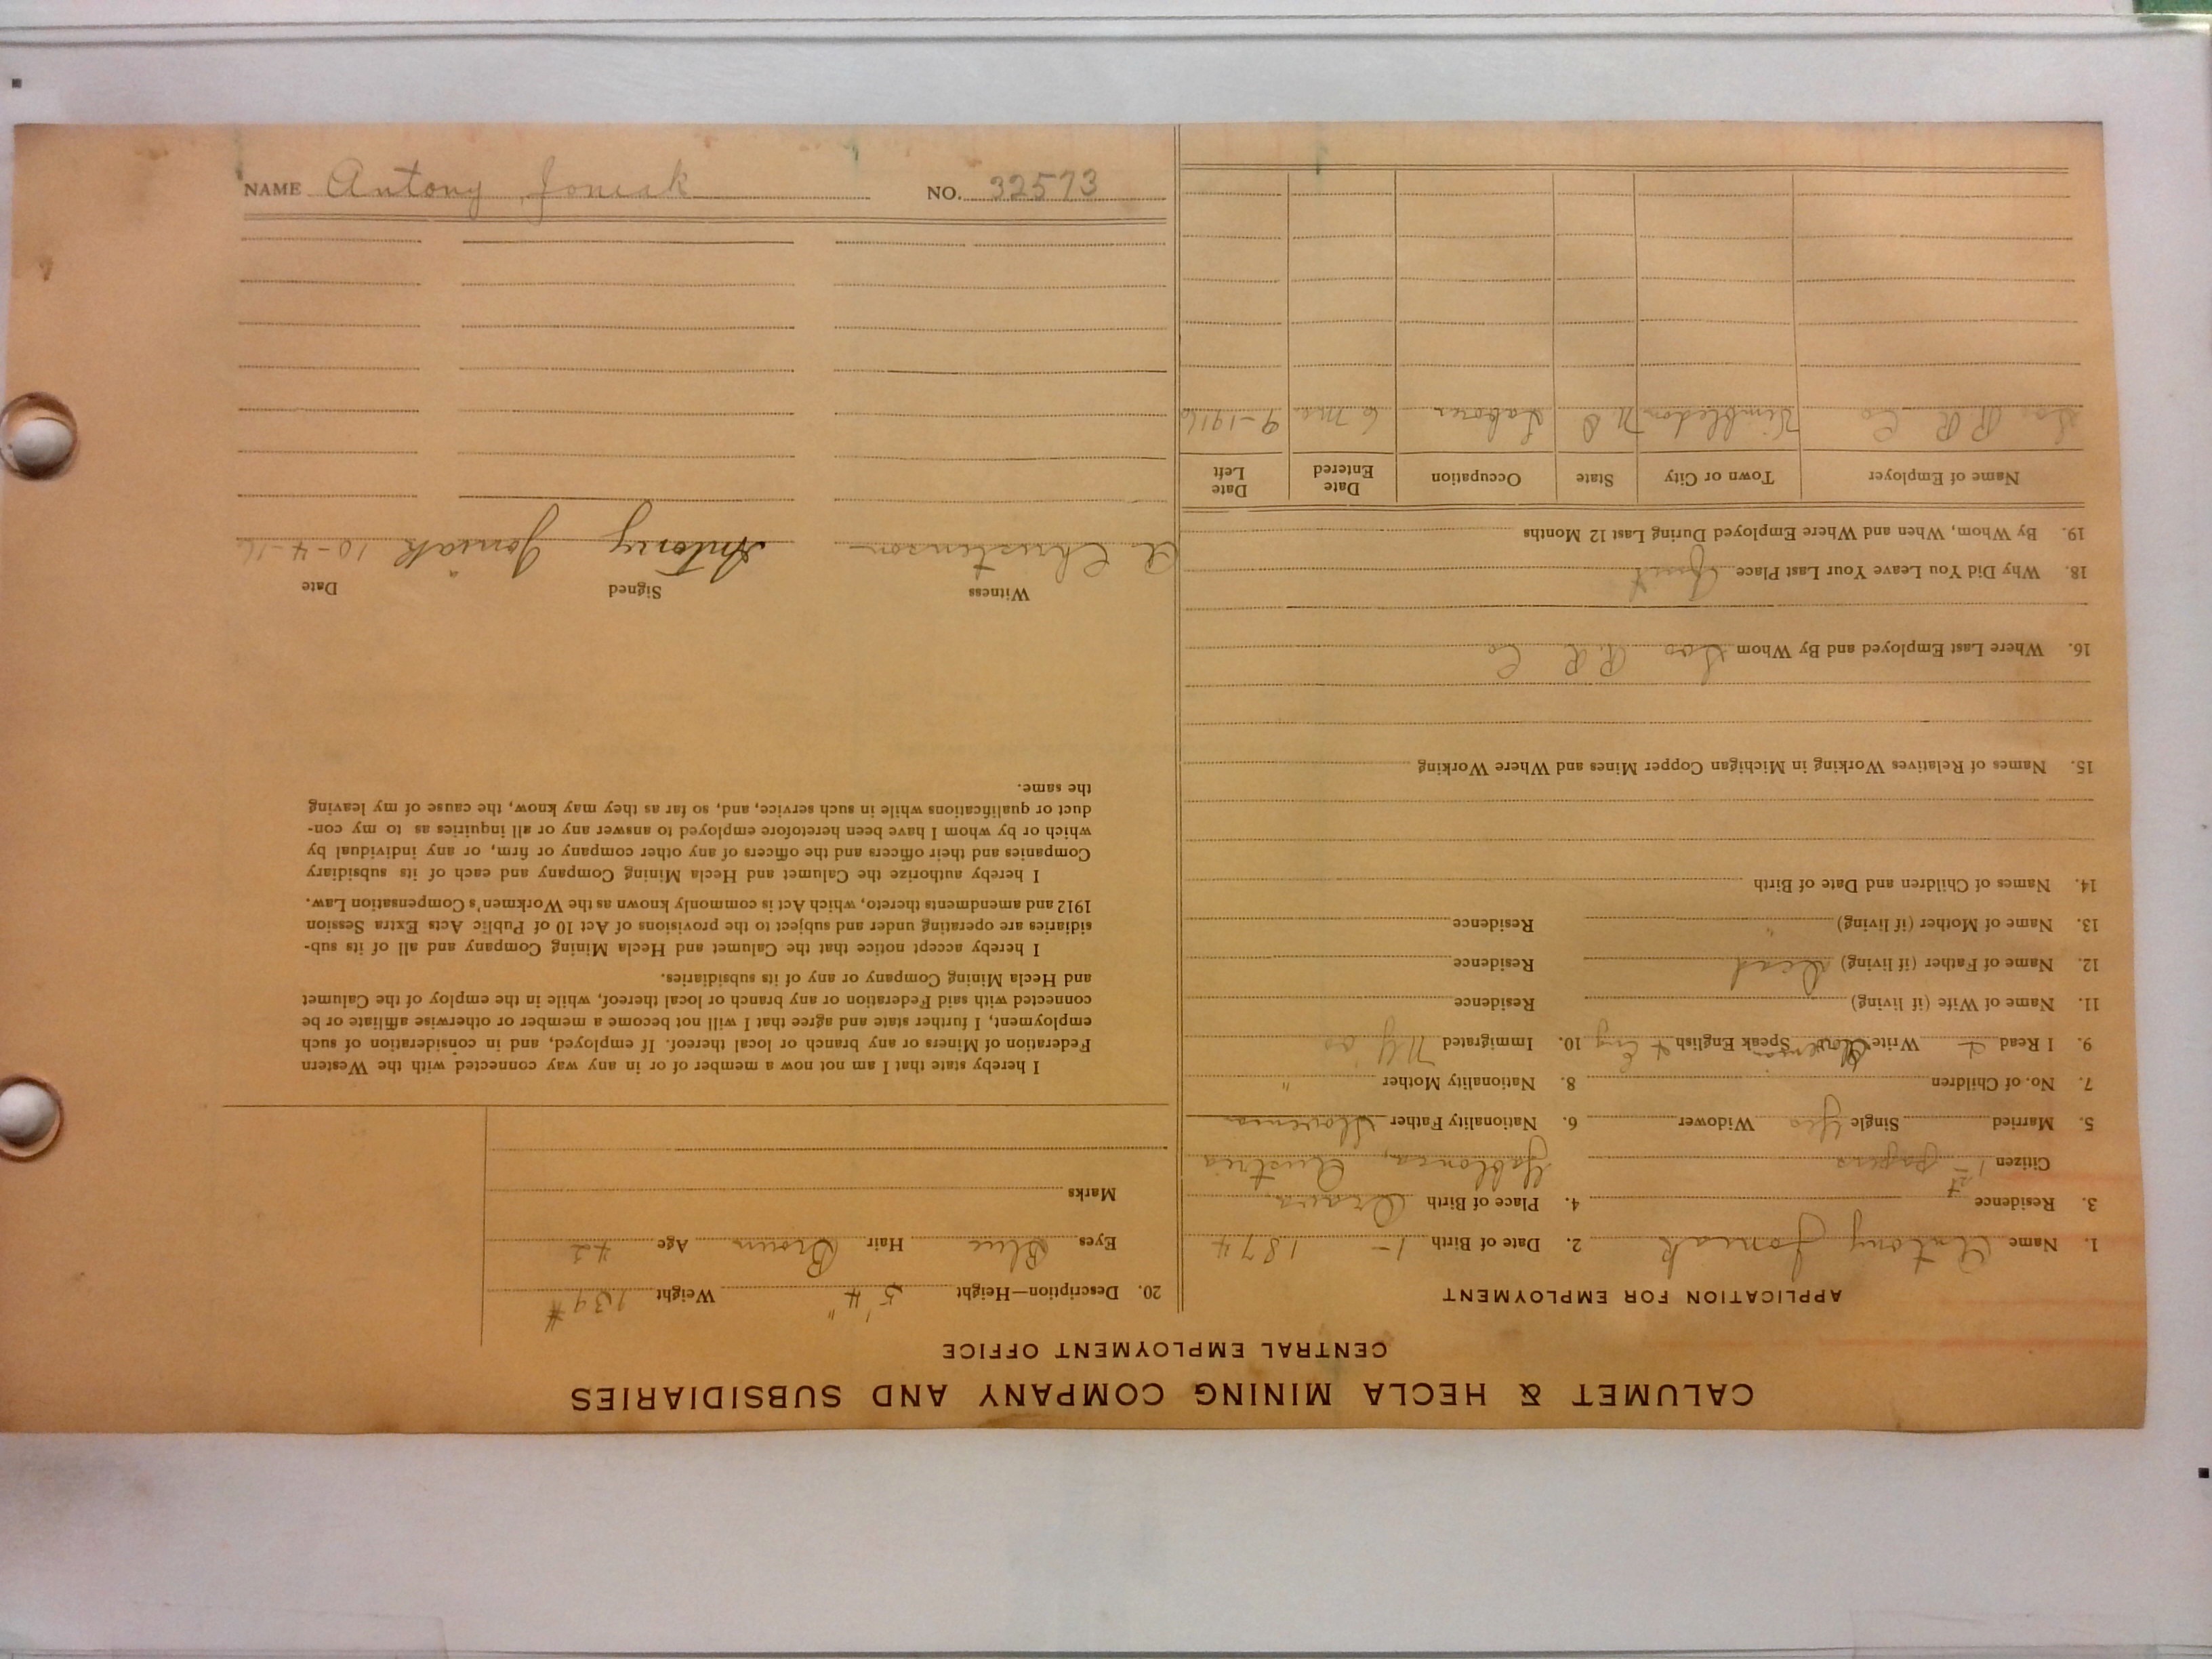 CALUMET & HECLA MINING COMPANY AND SUBSIDIARIES
CENTRAL EMPLOYMENT OFFICE
APPLICATION FOR EMPLOYMENT
1. Name Antony Joniak 2. Date of Birth 1- 1874
3. Residence 4. Place of Birth Orava
Citizen 1st papers Yablonca, Austria
5. Married Single Yes Widower 6. Nationality Father Slovenia
7. No. of Children 8. Nationality Mother "
9. I Read & Write Slovenian Speak English & Eng 10. Immigrated N.Y.
11. Name of Wife (if living) Residence
12. Name of Father (if living) Dead Residence
13. Name of Mother (if living) " Residence
14. Names of Children and Date of Birth
15. Names of Relatives Working in Michigan Copper Mines and Where Working
16. Where Last Employed and By Whom Soo R.R. Co
18. Why Did You Leave Your Last Place Quit
19. By Whom, When and Where Employed During Last 12 Months
Name of Employer Town or City State Occupation Date Entered Date Left
Soo R R Co Wimbledon N D Laborer 6 Mo. 9-1916
20. Description—Height 5' 4" Weight 134 #
Eyes Blue Hair Brown Age 42
Marks
I hereby state that I am not now a member of or in any way connected with the Western
Federation of Miners or any branch or local thereof. If employed, and in consideration of such
employment, I further state and agree that I will not become a member or otherwise affiliate or be
connected with said Federation or any branch or local thereof, while in the employ of the Calumet
and Hecla Mining Company or any of its subsidiaries.
I hereby accept notice that the Calumet and Hecla Mining Company and all of its sub-
sidiaries are operating under and subject to the provisions of Act 10 of Public Acts Extra Session
1912 and amendments thereto, which Act is commonly known as the Workmen's Compensation Law.
I hereby authorize the Calumet and Hecla Mining Company and each of its subsidiary
Companies and their officers and the officers of any other company or firm, or any individual by
which or by whom I have been heretofore employed to answer any or all inquiries as to my con-
duct or qualifications while in such service, and, so far as they may know, the cause of my leaving
the same.
Witness Signed Date
A Christenson Antony Joniak 10-4-16
NAME Antony Joniak NO. 32573